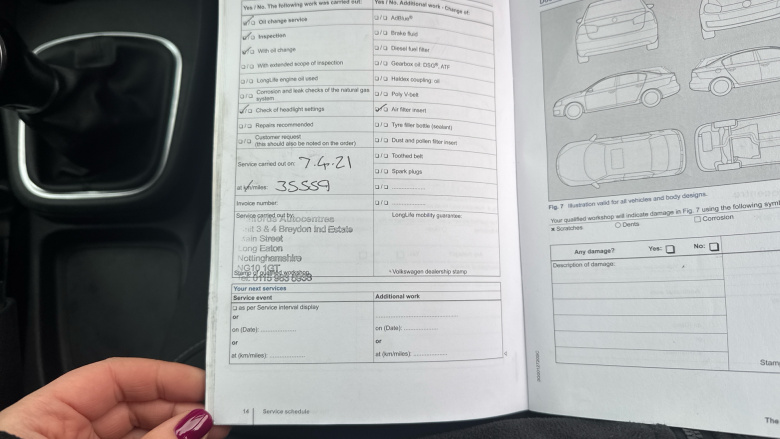 Yes / No. The following work was carried out:
Yes / No. Additional work - Change of:
Oil change service
AdBlue®
Inspection
Brake fluid
With oil change
Diesel fuel filter
With extended scope of inspection
Gearbox oil: DSG®, ATF
LongLife engine oil used
Haldex coupling: oil
Corrosion and leak checks of the natural gas
system
Poly V-belt
Check of headlight settings
Air filter insert
Repairs recommended
Tyre filler bottle (sealant)
Customer request
(this should also be noted on the order)
Dust and pollen filter insert
Service carried out on: 7.4.21
Toothed belt
Spark plugs
at km/miles: 35559
Invoice number:
Service carried out by:
LongLife mobility guarantee:
Autocentres
3 & 4 Breydon Ind Estate
Street
Long Eaton
Nottinghamshire
NG10 1GT
Stamp of qualified workshop
* Volkswagen dealership stamp
Your next services
Service event
Additional work
as per Service interval display
or
on (Date):
on (Date):
or
or
at (km/miles):
at (km/miles):
14 Service schedule
Fig. 7 Illustration valid for all vehicles and body designs.
Your qualified workshop will indicate damage in Fig. 7 using the following
x Scratches
Dents
Corrosion
Any damage? Yes: No:
Description of damage:
Stam
The